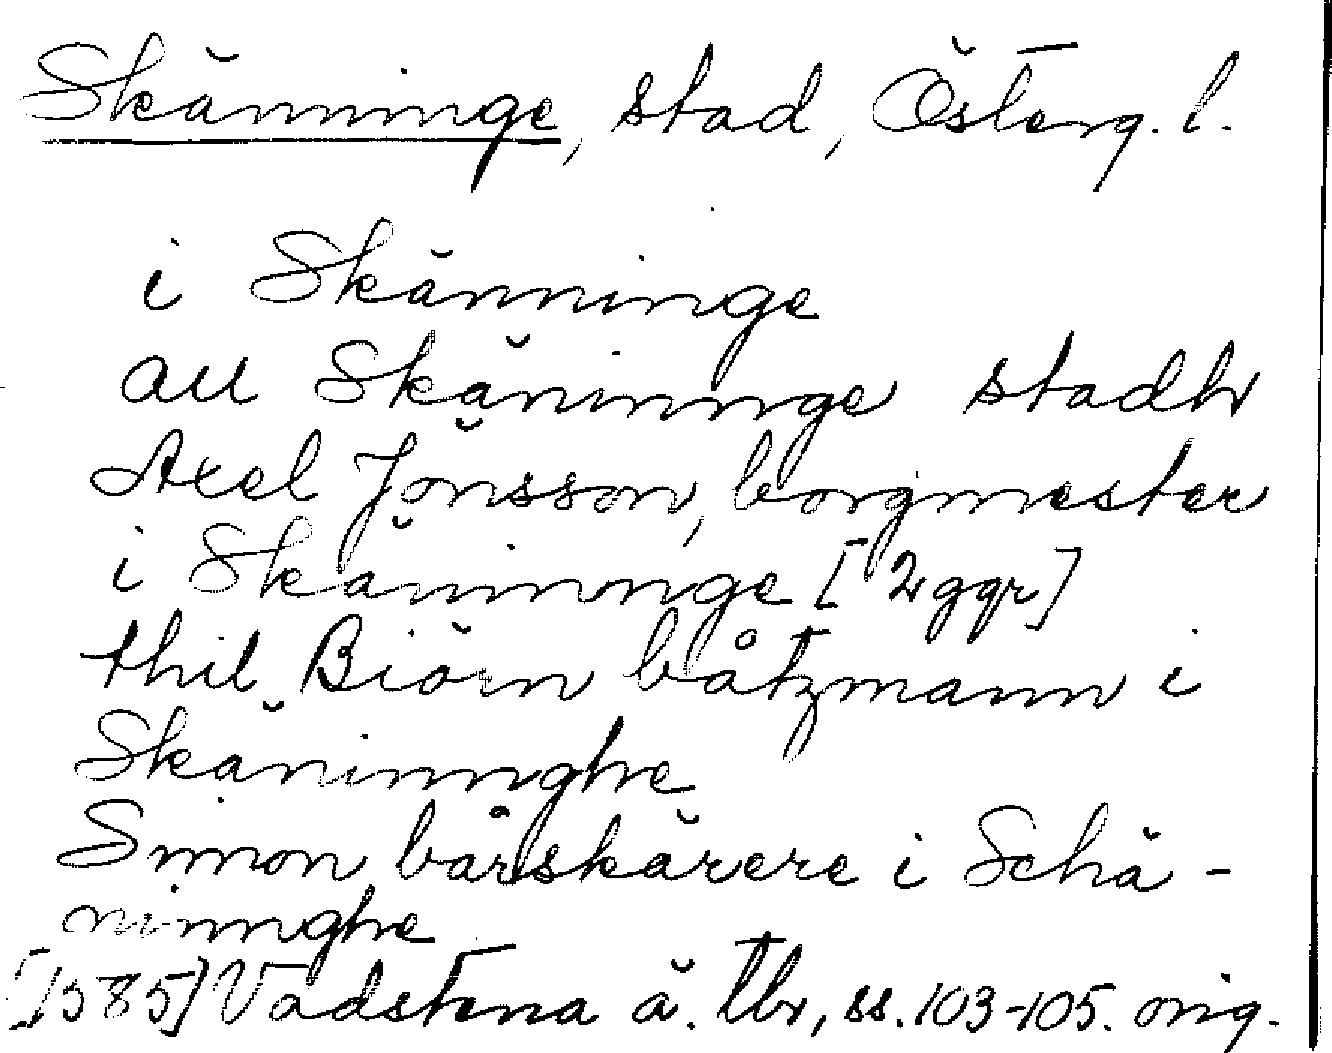 Skänninge, stad, Österg. l.
i Skänninge
au Skäninnge stadh
Axel Jönsson, borgmester
i Skäninnge [2 ggr]
thil Biörn båtzmann i
Skäninnghe
Simon bårskärere i Schä-
ninnghe
[1585] Vadstena ä. tb, ss. 103-105. orig.